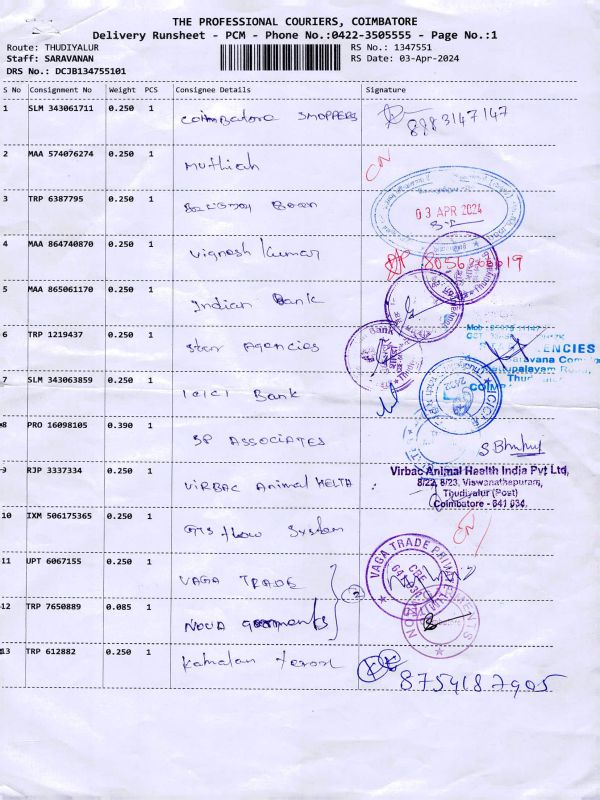 THE PROFESSIONAL COURIERS, COIMBATORE
Delivery Runsheet - PCM - Phone No.:0422-3505555 - Page No.:1
Route: THUDIYALUR
RS No.: 1347551
Staff: SARAVANAN
RS Date: 03-Apr-2024
DRS No.: DCJB134755101
S No Consignment No Weight PCS Consignee Details Signature
1 SLM 343061711 0.250 1 Coimbatore SHOPPERS 8883147147
2 MAA 574076274 0.250 1 Muthiah CN
3 TRP 6387795 0.250 1
03 APR 2024
4 MAA 864740870 0.250 1 Vignesh Kumar
5 MAA 865061170 0.250 1 Indian Bank
6 TRP 1219437 0.250 1 Star Agencies
Bank
ENCIES
7 SLM 343063859 0.250 1 ICICI Bank
8 PRO 16098105 0.390 1 SP ASSOCIATES
9 RJP 3337334 0.250 1 VIRBAC Animal HELTA
Virbac Animal Health India Pvt Ltd,
8/22, 8/23, Viswanathapuram,
Thudiyalur (Post)
Coimbatore - 641 034.
10 IXM 506175365 0.250 1 GTS flow System CN
11 UPT 6067155 0.250 1 VAGA TRADE
VAGA TRADE PRIME
CBE
12 TRP 7650889 0.085 1 NOVA garments
13 TRP 612882 0.250 1 8754187905